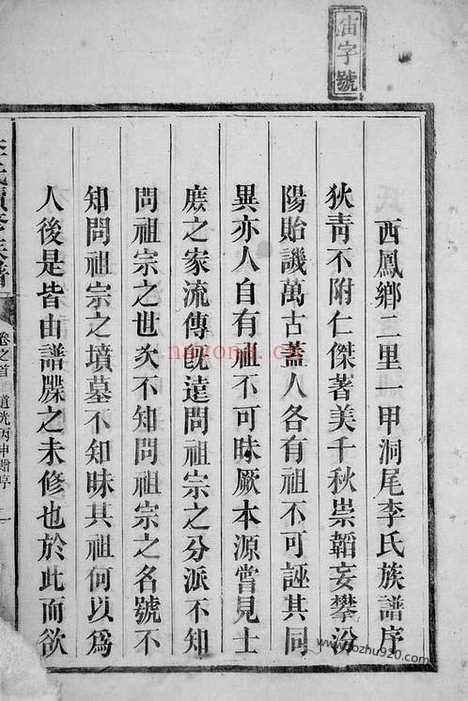 宙字號
西鳳鄉二里一甲洞尾李氏族譜序
狄青不附仁傑著美千秋崇韜妄攀汾
陽貽譏萬古蓋人各有祖不可誣其同
異亦人自有祖不可昧厥本源嘗見士
庶之家流傳旣遠問祖宗之分派不知
問祖宗之世次不知問祖宗之名號不
知問祖宗之墳墓不知昧其祖何以爲
人後是皆由譜牒之未修也於此而欲
李氏續修族譜
卷之首 道光丙申贈序 一
nayona.cn
bozhu920.com